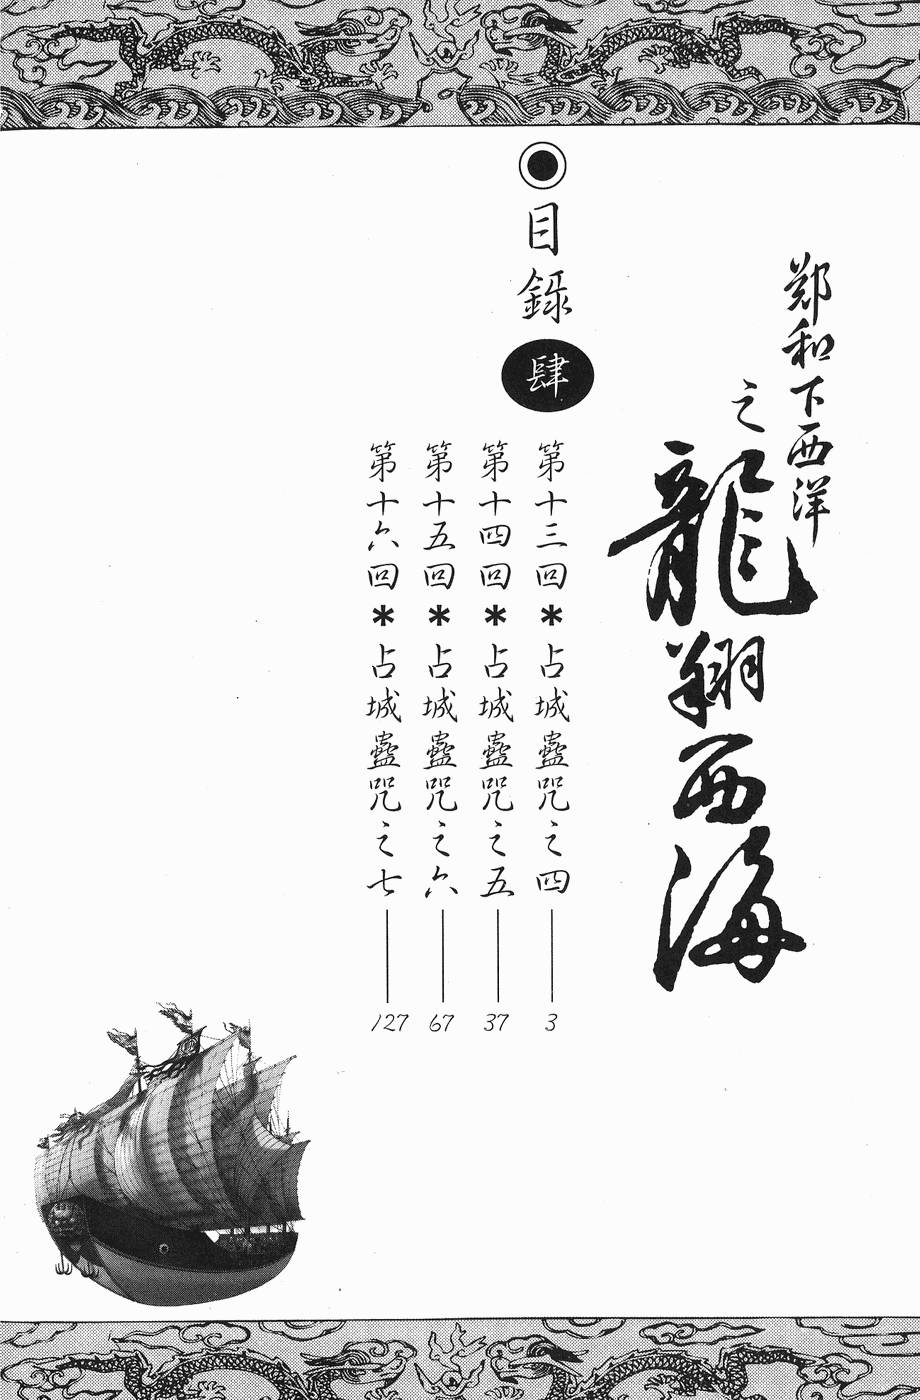 鄭和下西洋
之
龍翔西海
目錄
肆
第十三回＊占城蠱咒之四——3
第十四回＊占城蠱咒之五——37
第十五回＊占城蠱咒之六——67
第十六回＊占城蠱咒之七——127